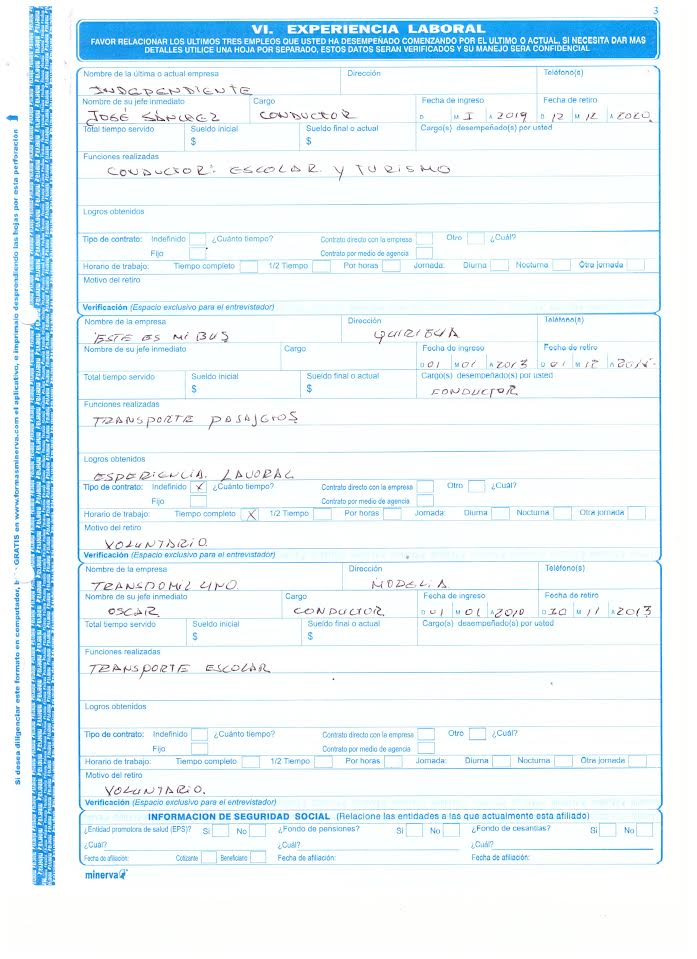 3
VI. EXPERIENCIA LABORAL
FAVOR RELACIONAR LOS ULTIMOS TRES EMPLEOS QUE USTED HA DESEMPEÑADO COMENZANDO POR EL ULTIMO O ACTUAL, SI NECESITA DAR MAS
DETALLES UTILICE UNA HOJA POR SEPARADO, ESTOS DATOS SERAN VERIFICADOS Y SU MANEJO SERA CONFIDENCIAL
Nombre de la última o actual empresa Dirección Teléfono(s)
INDEPENDIENTE
Nombre de su jefe inmediato Cargo Fecha de ingreso Fecha de retiro
JOSE SÁNCHEZ CONDUCTOR D M I A 2019 D 12 M 12 A 2020
Total tiempo servido Sueldo inicial Sueldo final o actual Cargo(s) desempeñado(s) por usted
$ $
Funciones realizadas
CONDUCTOR: ESCOLAR Y TURISMO
Logros obtenidos
Tipo de contrato: Indefinido ¿Cuánto tiempo? Contrato directo con la empresa Otro ¿Cuál?
Fijo Contrato por medio de agencia
Horario de trabajo: Tiempo completo 1/2 Tiempo Por horas Jornada: Diurna Nocturna Otra jornada
Motivo del retiro
Verificación (Espacio exclusivo para el entrevistador)
Nombre de la empresa Dirección Teléfono(s)
ESTE ES MI BUS QUIRIGUA
Nombre de su jefe inmediato Cargo Fecha de ingreso Fecha de retiro
D 01 M 01 A 2013 D 01 M 12 A
Total tiempo servido Sueldo inicial Sueldo final o actual Cargo(s) desempeñado(s) por usted
$ $ CONDUCTOR
Funciones realizadas
TRANSPORTE PASAJEROS
Logros obtenidos
ESPERIENCIA. LAVORAL
Tipo de contrato: Indefinido X ¿Cuánto tiempo? Contrato directo con la empresa Otro ¿Cuál?
Fijo Contrato por medio de agencia
Horario de trabajo: Tiempo completo X 1/2 Tiempo Por horas Jornada: Diurna Nocturna Otra jornada
Motivo del retiro
VOLUNTARIO
Verificación (Espacio exclusivo para el entrevistador)
Nombre de la empresa Dirección Teléfono(s)
TRANSDOMIL UNO MODELIA
Nombre de su jefe inmediato Cargo Fecha de ingreso Fecha de retiro
OSCAR CONDUCTOR D 01 M 01 A 2010 D 10 M 11 A 2013
Total tiempo servido Sueldo inicial Sueldo final o actual Cargo(s) desempeñado(s) por usted
$ $
Funciones realizadas
TRANSPORTE ESCOLAR
Logros obtenidos
Tipo de contrato: Indefinido ¿Cuánto tiempo? Contrato directo con la empresa Otro ¿Cuál?
Fijo Contrato por medio de agencia
Horario de trabajo: Tiempo completo 1/2 Tiempo Por horas Jornada: Diurna Nocturna Otra jornada
Motivo del retiro
VOLUNTARIO.
Verificación (Espacio exclusivo para el entrevistador)
INFORMACION DE SEGURIDAD SOCIAL (Relacione las entidades a las que actualmente esta afiliado)
¿Entidad promotora de salud (EPS)? Si No ¿Fondo de pensiones? Si No ¿Fondo de cesantías? Si No
¿Cuál? ¿Cuál? ¿Cuál?
Fecha de afiliación: Cotizante Beneficiario Fecha de afiliación: Fecha de afiliación:
minerva
Si desea diligenciar este formato en computador, GRATIS en www.formasminerva.com el aplicativo, e imprimalo desprendiendo las hojas por esta perforación